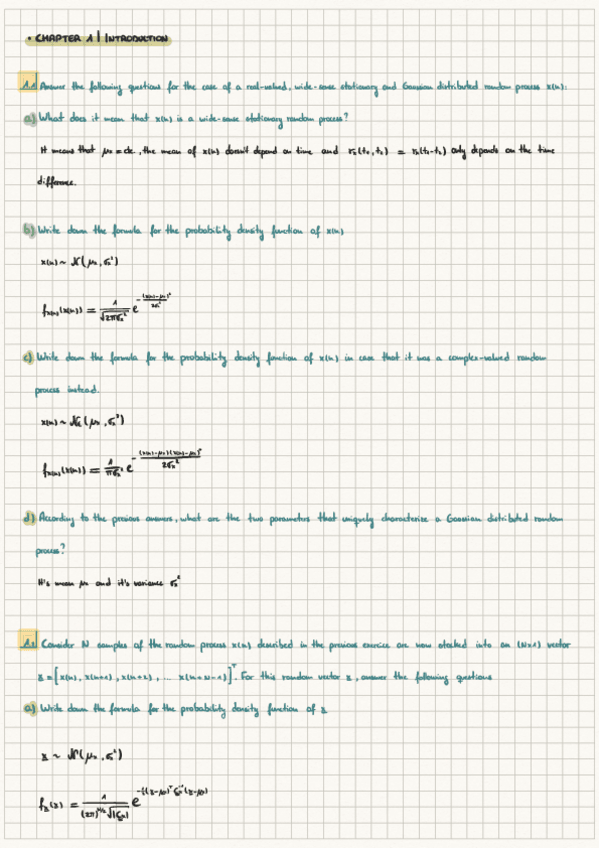 • CHAPTER 1 | INTRODUCTION
1.1 Answer the following questions for the case of a real-valued, wide-sense stationary and Gaussian distributed random process x(n):
a) What does it mean that x(n) is a wide-sense stationary random process?
It means that μx = cte., the mean of x(n) doesn't depend on time and rx(t1,t2) = rx(t1-t2) only depends on the time
difference.
b) Write down the formula for the probability density function of x(n)
x(n) ~ N(μx, σx²)
fx(n)(x(n)) = 1/√(2πσx²) e^-(x(n)-μx)²/2σx²
c) Write down the formula for the probability density function of x(n) in case that it was a complex-valued random
process instead.
x(n) ~ Nc(μx, σx²)
fx(n)(x(n)) = 1/πσx² e^-(x(n)-μx)(x(n)-μx)*/2σx²
d) According to the previous answers, what are the two parameters that uniquely characterize a Gaussian distributed random
process?
It's mean μx and it's variance σx²
Consider N samples of the random process x(n) described in the previous exercise are now stacked into an (N×1) vector
x = [x(n), x(n+1), x(n+2), ... x(n+N-1)]^T. For this random vector x, answer the following questions
a) Write down the formula for the probability density function of x
x ~ N(μx, σx²)
fx(x) = 1/(2π)^N/2 √|Cx| e^-½(x-μx)^T Cx^-1 (x-μx)